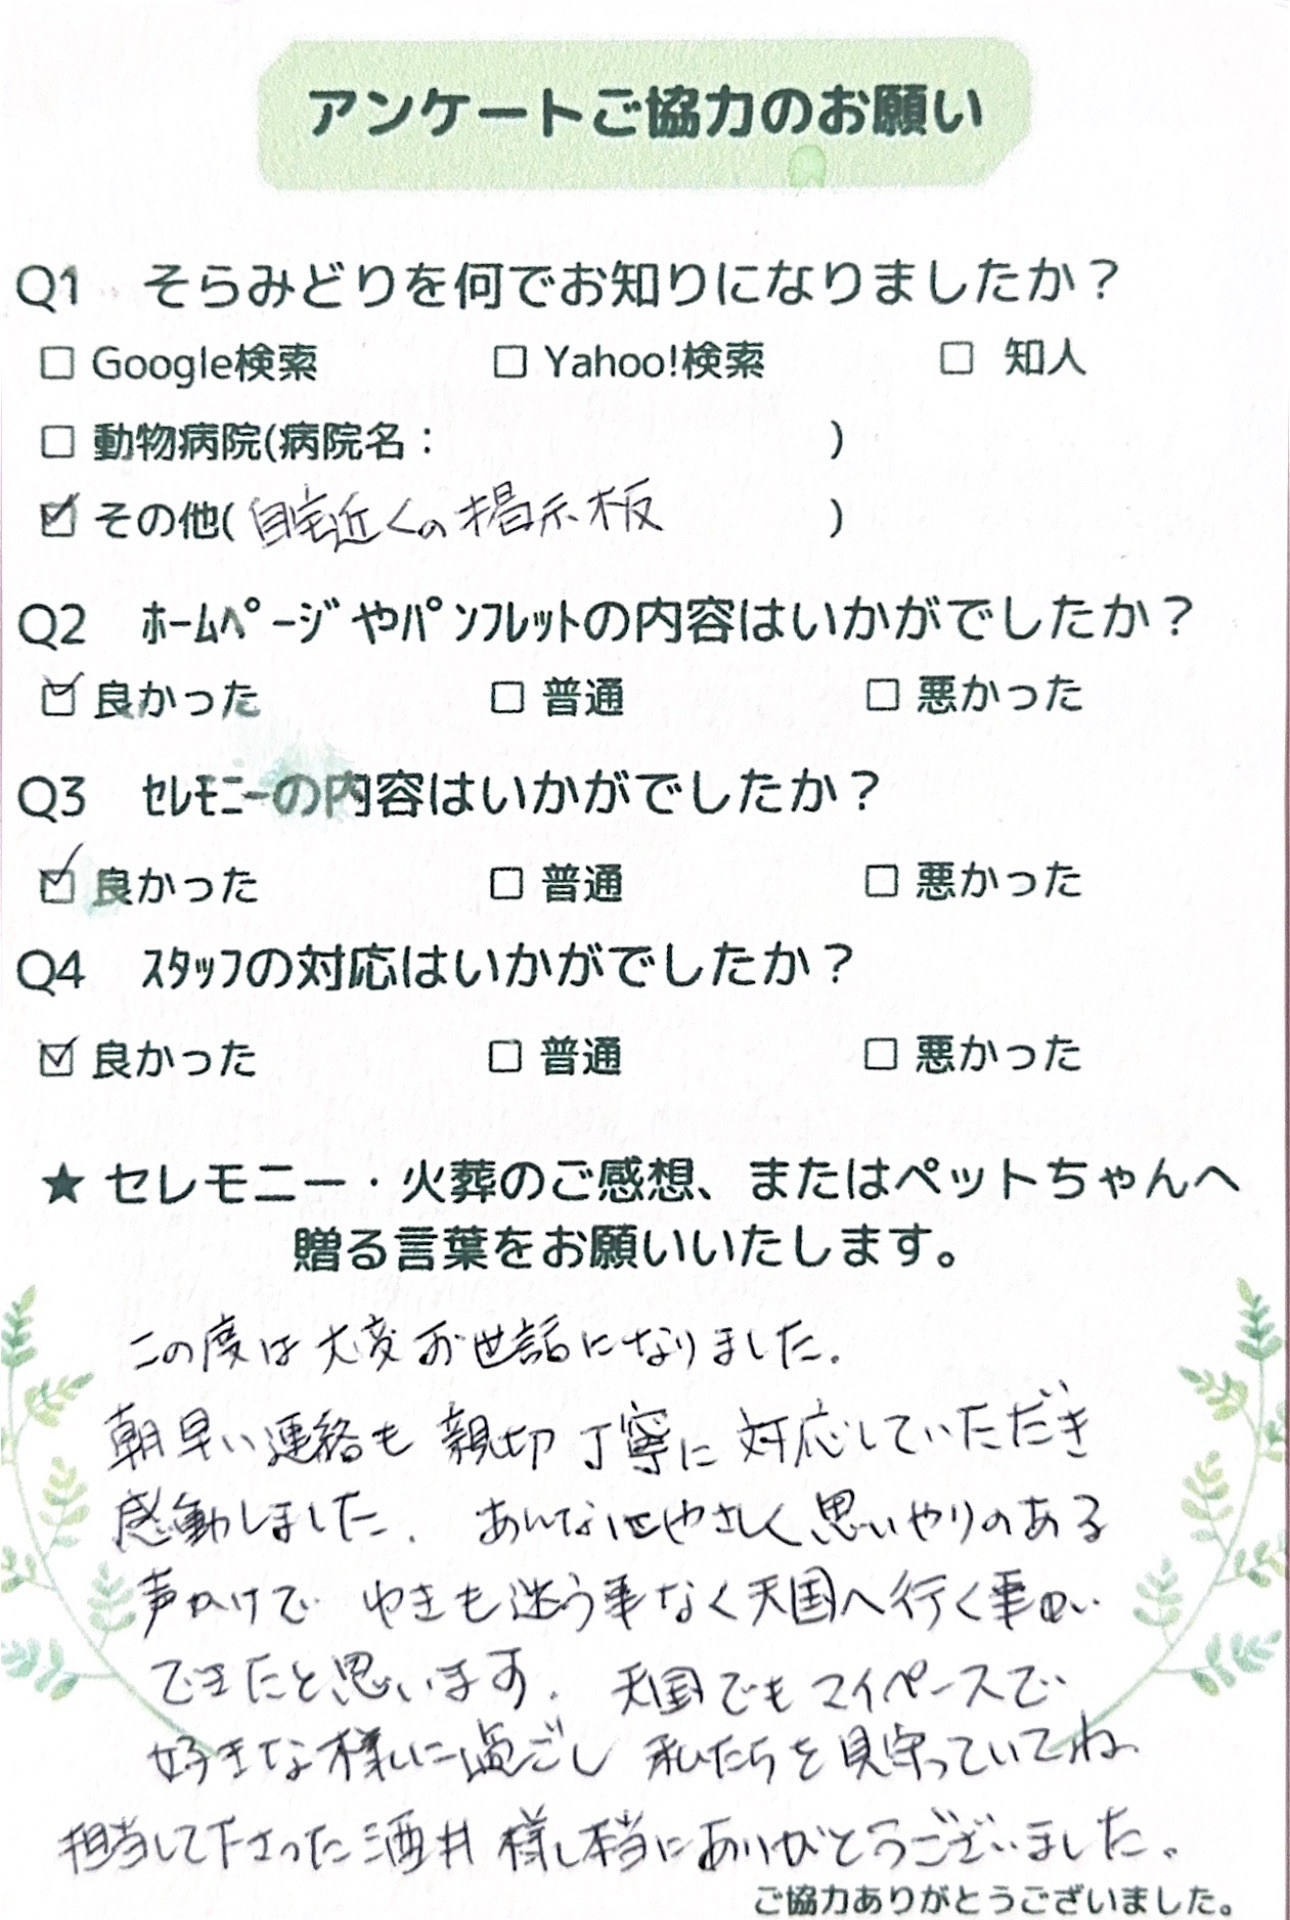 アンケートご協力のお願い
Q1 そらみどりを何でお知りになりましたか？
□ Google検索 □ Yahoo!検索 □ 知人
□ 動物病院(病院名： )
☑ その他( 自宅近くの掲示板 )
Q2 ﾎｰﾑﾍﾟｰｼﾞやﾊﾟﾝﾌﾚｯﾄの内容はいかがでしたか？
☑ 良かった □ 普通 □ 悪かった
Q3 ｾﾚﾓﾆｰの内容はいかがでしたか？
☑ 良かった □ 普通 □ 悪かった
Q4 ｽﾀｯﾌの対応はいかがでしたか？
☑ 良かった □ 普通 □ 悪かった
★ セレモニー・火葬のご感想、またはペットちゃんへ
贈る言葉をお願いいたします。
この度は大変お世話になりました.
朝早い連絡も 親切丁寧に対応していただき
感動しました. あんなにやさしく思いやりのある
声かけで ゆきも迷う事なく天国へ行く事が
できたと思います. 天国でもマイペースで
好きな様に過ごし 私たちを見守っていてね
担当して下さった酒井様 本当にありがとうございました。
ご協力ありがとうございました。